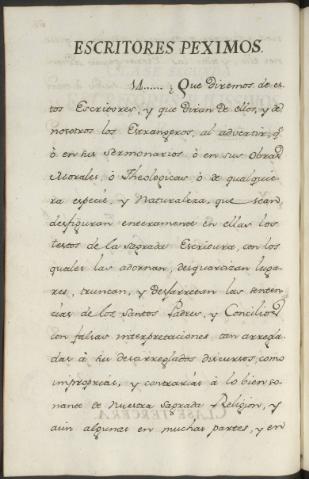 ESCRITORES PEXIMOS.
14...... ¿Que diremos de es-
tos Escritores, y que diran de ellos, y de
nosotros los Estrangeros, al advertir, q̃
ò en sus Sermonarios ò en sus Obras
Morales, ò Theologicas ò de qualquie-
ra especie, y Naturaleza, que sean,
desfiguran enteramente en ellas los
textos de la sagrada Escritura, con los
quales las adornan, desquartizan luga-
res, truncan, y desfarretan las senten-
cias de los Santos Padres, y Concilios,
con falsas interpretaciones tan arregla-
das à sus desarreglados discursos, como
improprias, y contrarias à lo bien so-
nante de nuestra sagrada Religion, y
aun algunas en muchas partes, y en